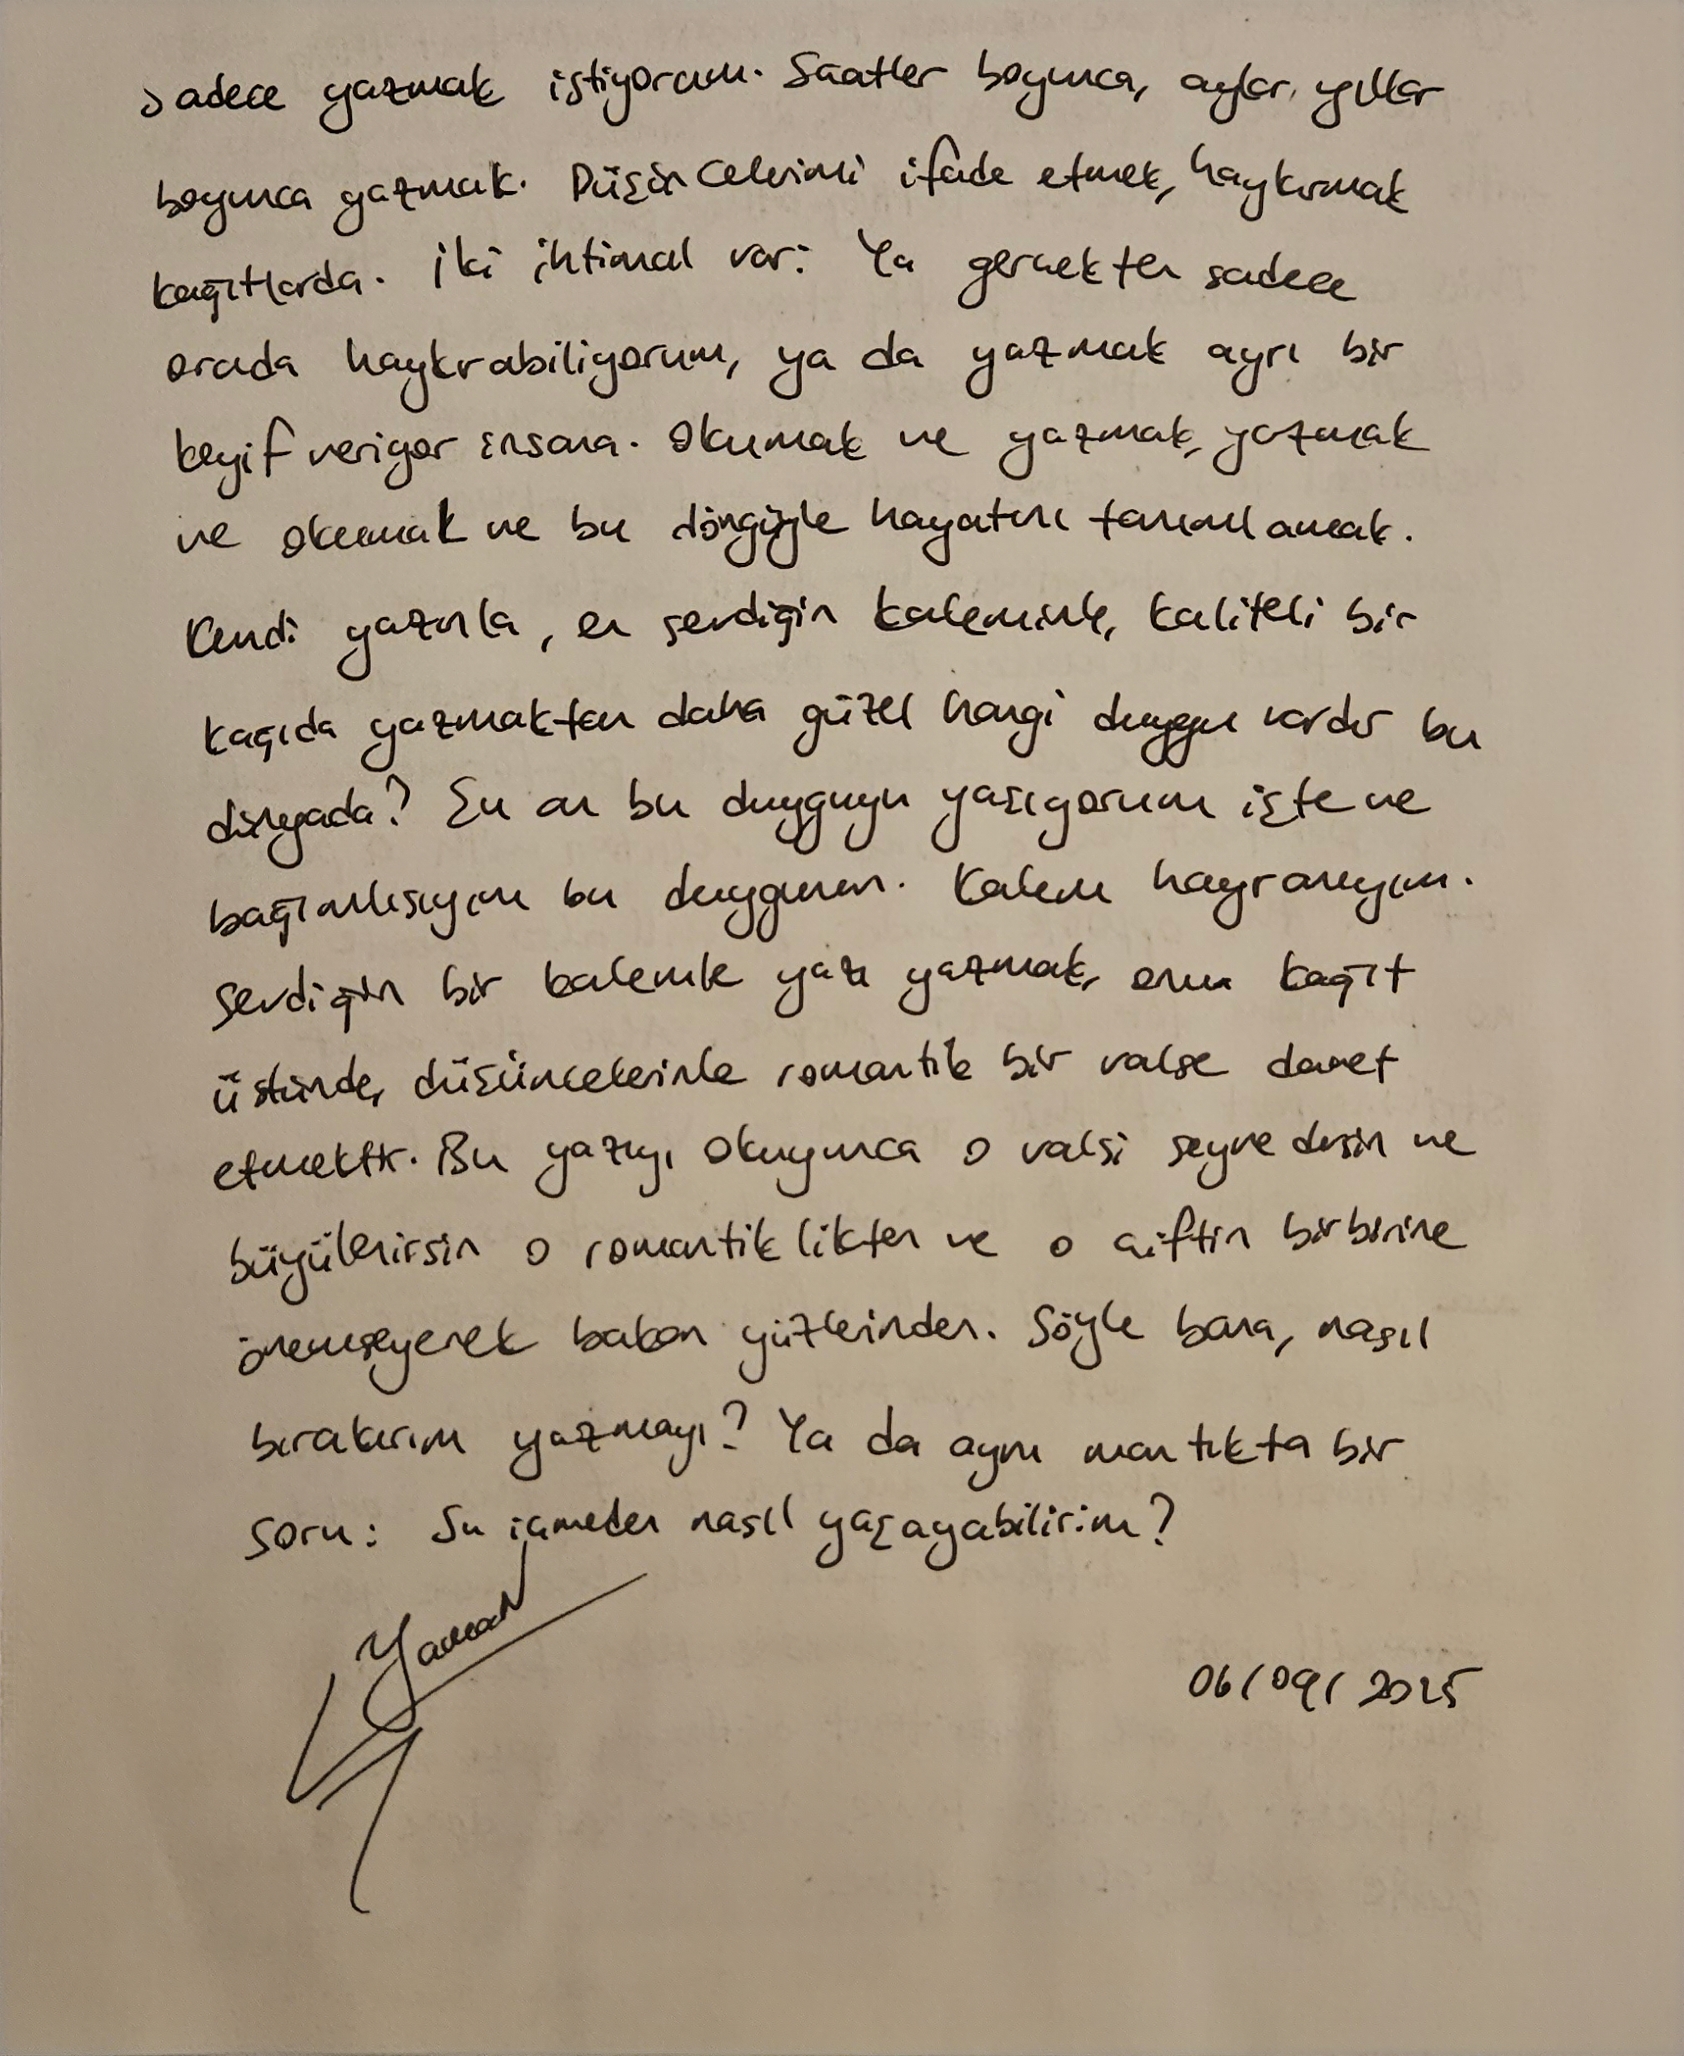 Sadece yazmak istiyorum. Saatler boyunca, aylar, yıllar
boyunca yazmak. Düşüncelerimi ifade etmek, haykırmak
kağıtlarda. İki ihtimal var: Ya gerçekten sadece
orada haykırabiliyorum, ya da yazmak ayrı bir
keyif veriyor insana. Okumak ve yazmak, yazmak
ve okumak ve bu döngüyle hayatını tanımlamak.
Kendi yazınla, en sevdiğin kaleminle, kaliteli bir
kağıda yazmaktan daha güzel hangi duygu vardır bu
dünyada? Şu an bu duyguyu yaşıyorum işte ve
bağımlısıyım bu duygunun. Kalem hayranıyım.
Sevdiğin bir kalemle yazı yazmak, onu kağıt
üstünde, düşüncelerinle romantik bir valse davet
etmektir. Bu yazıyı okuyunca o valsi seyredersin ve
büyülenirsin o romantiklikten ve o çiftin birbirine
önemseyerek bakan yüzlerinden. Söyle bana, nasıl
bırakırım yazmayı? Ya da aynı mantıkta bir
soru: Su içmeden nasıl yaşayabilirim?
Yaman
06/09/2025